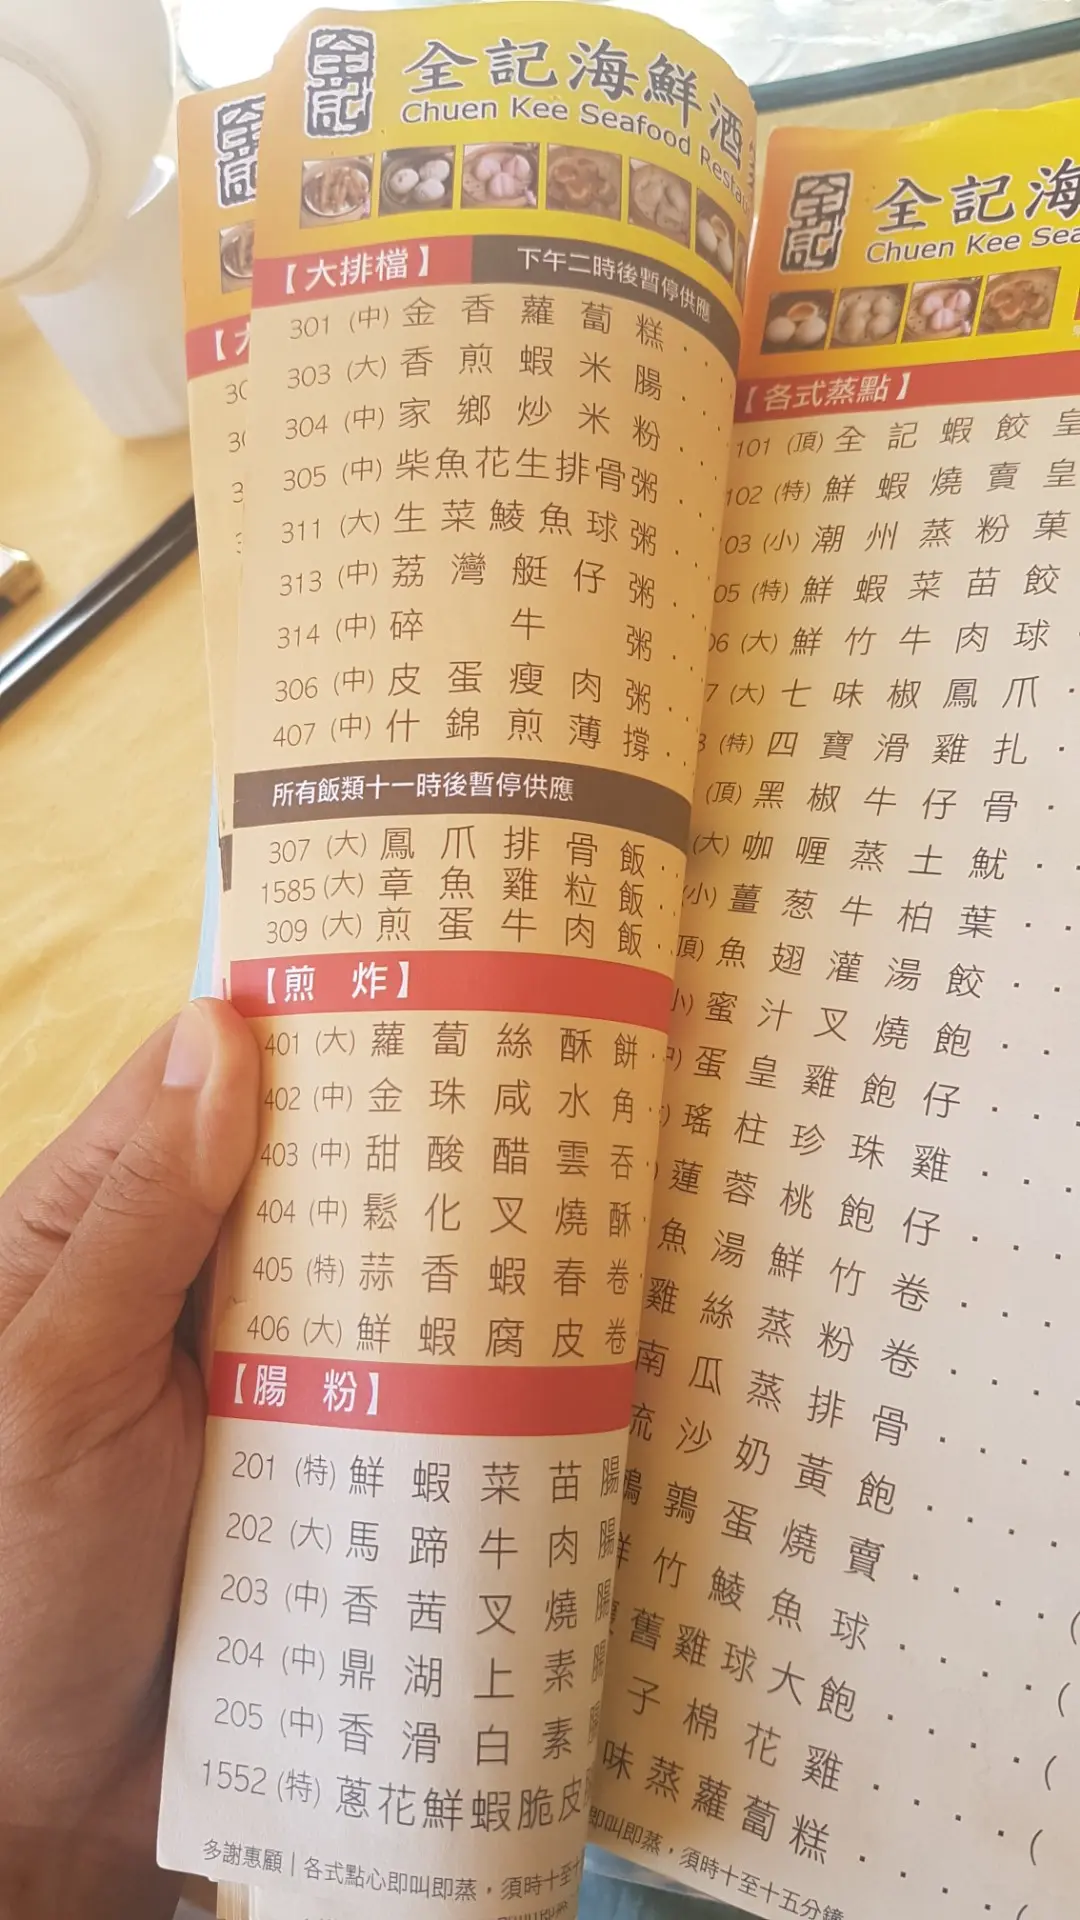 全記
全記海鮮酒
Chuen Kee Seafood Restau
【大排檔】 下午二時後暫停供應
301 (中) 金香蘿蔔糕 . .
303 (大) 香煎蝦米腸 . .
304 (中) 家鄉炒米粉 . .
305 (中) 柴魚花生排骨粥 . .
311 (大) 生菜鯪魚球粥 . .
313 (中) 荔灣艇仔粥 . .
314 (中) 碎牛粥 . .
306 (中) 皮蛋瘦肉粥 . .
407 (中) 什錦煎薄撐 . .
所有飯類十一時後暫停供應
307 (大) 鳳爪排骨飯 . .
1585 (大) 章魚雞粒飯 . .
309 (大) 煎蛋牛肉飯 .
【煎 炸】
401 (大) 蘿蔔絲酥餅 .
402 (中) 金珠咸水角 .
403 (中) 甜酸醋雲吞 .
404 (中) 鬆化叉燒酥 .
405 (特) 蒜香蝦春卷 .
406 (大) 鮮蝦腐皮卷
【腸 粉】
201 (特) 鮮蝦菜苗腸
202 (大) 馬蹄牛肉腸
203 (中) 香茜叉燒腸
204 (中) 鼎湖上素腸
205 (中) 香滑白素
1552 (特) 蔥花鮮蝦脆皮
多謝惠顧 | 各式點心即叫即蒸，須時十至十
全記
全記海
Chuen Kee Sea
【各式蒸點】
101 (頂) 全記蝦餃皇
102 (特) 鮮蝦燒賣皇
03 (小) 潮州蒸粉菓
05 (特) 鮮蝦菜苗餃
06 (大) 鮮竹牛肉球
7 (大) 七味椒鳳爪 .
(特) 四寶滑雞扎 .
(頂) 黑椒牛仔骨 .
(大) 咖喱蒸土魷 . .
小) 薑葱牛柏葉 . .
頂) 魚翅灌湯餃 . .
小) 蜜汁叉燒飽 . .
中) 蛋皇雞飽仔 . . .
) 瑤柱珍珠雞 . . .
) 蓮蓉桃飽仔 . . .
魚湯鮮竹卷 . . .
雞絲蒸粉卷 . . .
南瓜蒸排骨 . . .
流沙奶黃飽 . . .
鵪鶉蛋燒賣 . . .
鮮竹鯪魚球 . . . (
舊雞球大飽 . . . . (
子棉花雞 . . . . (
味蒸蘿蔔糕 . . . . (
即叫即蒸，須時十至十五分鐘
全記